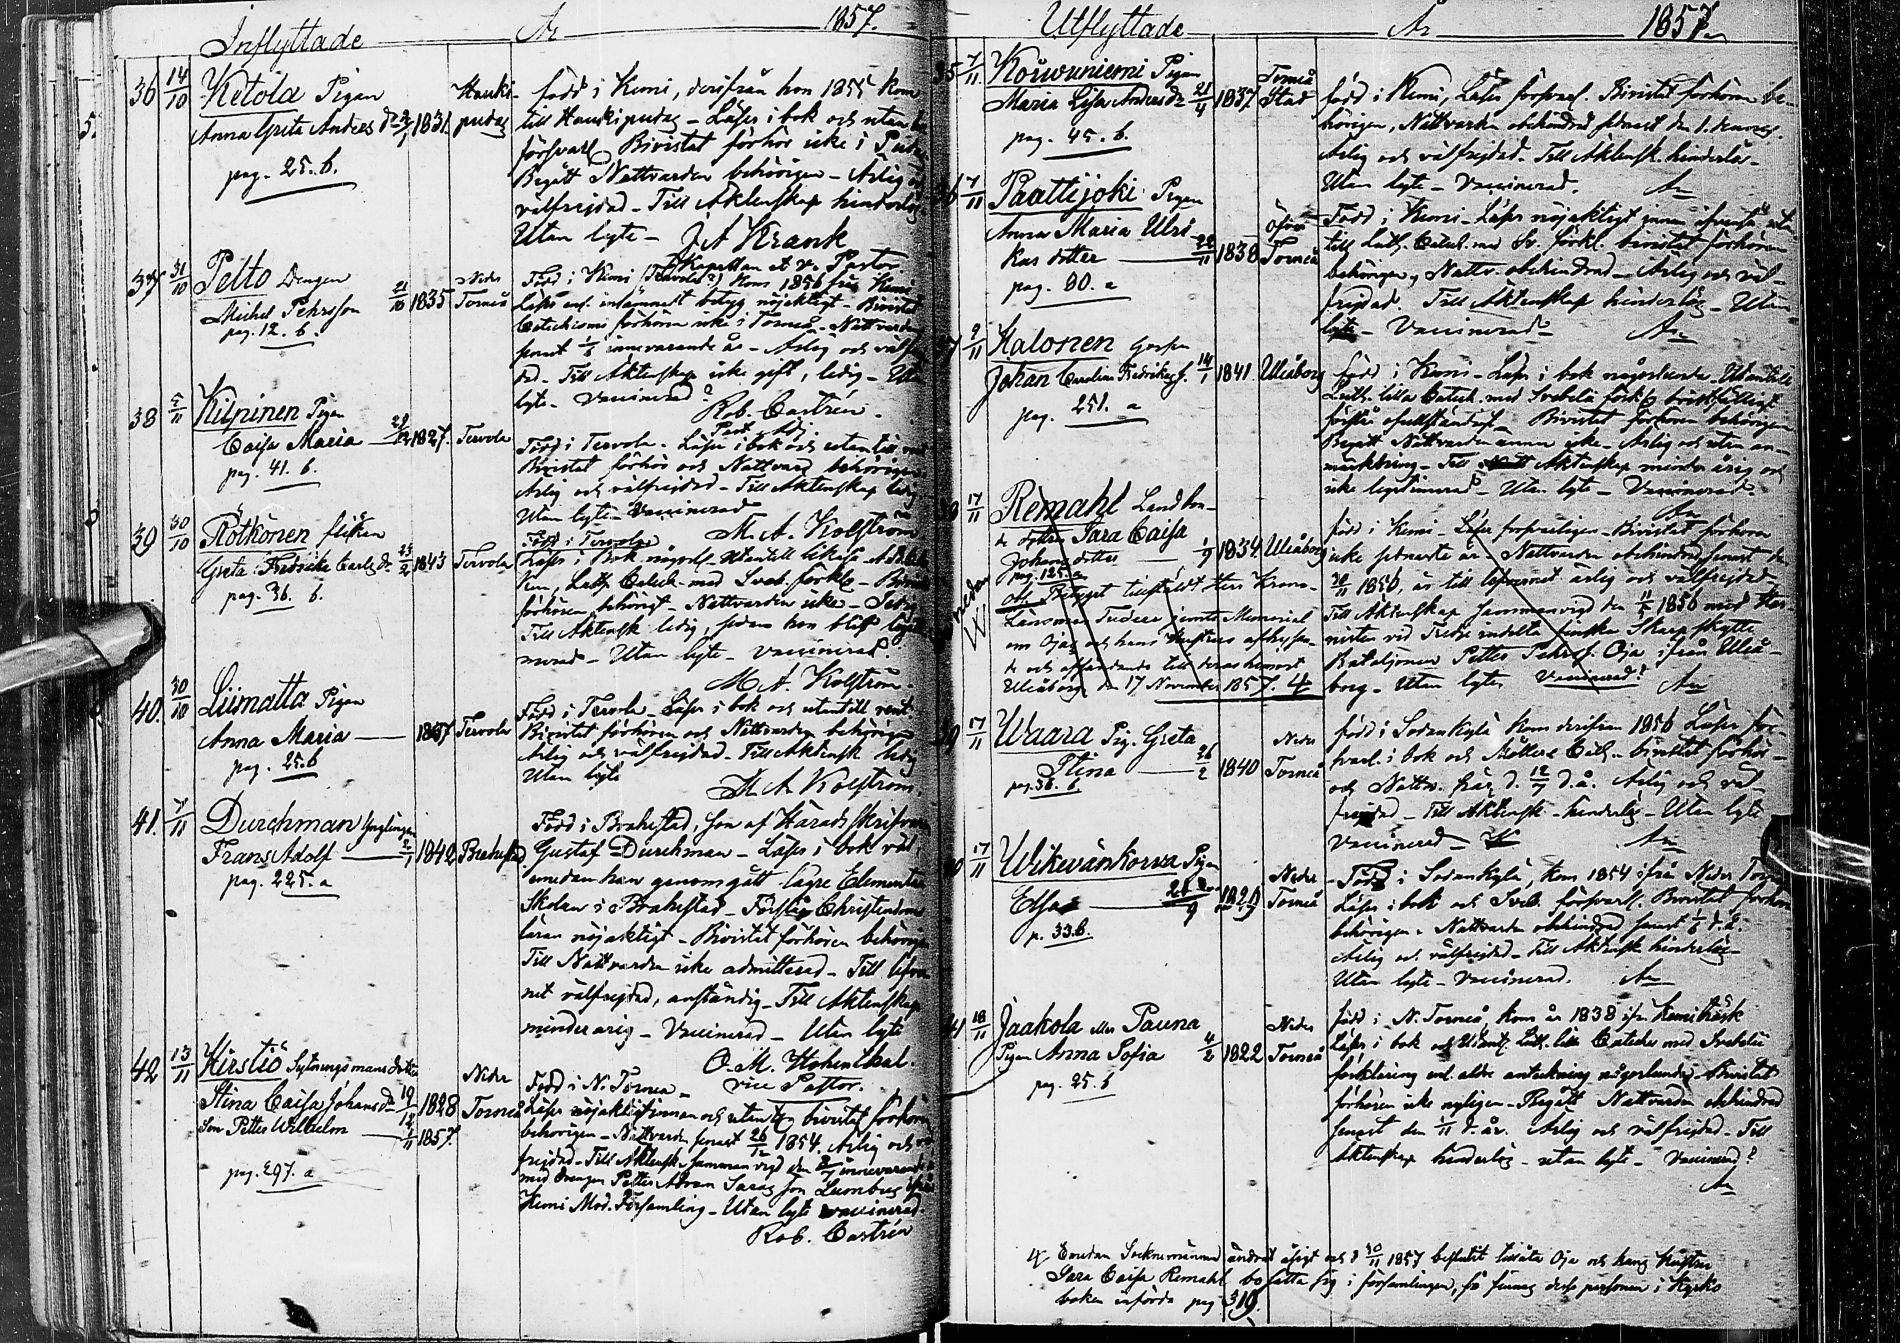 Inflyttade År 1857.
36 14/10 Ketola Pigan
Anna Greta Anders dr 1831
pag. 25. b.
Hauki-
pudas
född i Kemi, derifrån hon 1855 kom
till Haukipudas – Läser i bok och utan
försvarl. Bivistat förhör icke i Pudas
Begått Nattvarden behörigen – Ärlig och
välfrejdad – Till Äktenskap hinderlös
Utan lyte – J A Krank
Kapellan et v. Pastor
37 31/10 Pelto Drengen
Michel Pehrsson 21/10 1835
pag. 12. b.
Neder
Torneå
Född i Kemi (Tervola?) Kom 1856 från Kemi
Läser enl. insämnadt betyg nöjaktigt – Bivistat
Catechismi förhören icke i Torneå – Nattvarden
senast innevarande år – Ärlig och välfrej
dad – Till Äktenskap icke gift, ledig – Utan
lyte – Vaccinerad?
Rob. Castrén.
Past. Adj.
38 5/11 Kilpinen Pigan
Caisa Maria 1827
pag. 41. b.
Tervola
Född i Tervola. Läser i bok och utantill
Bivistat förhör och Nattvard behörigen
Ärlig och välfrejdad – Till Äktenskap ledig
Utan lyte – Vaccinerad
M. A. Kolström
39 30/10 Rötkönen flickan
Greta Fredrika Carls dr 23/2 1843
pag. 36. b.
Tervola
Född i Tervola
Läser i Bok någorl. Utantill likaså
Luth. Catech. med Sveb. förkl. –
förhören behörigt – Nattvarden icke –
Till Äktensk. ledig, sedan hon blifvit legiti
merad – Utan lyte – vaccinerad
M. A. Kolström
40. 30/10 Liimatta Pigan
Anna Maria 1837
pag. 25. b
Tervola
Född i Tervola – Läser i bok och utantill rent.
Bivistat förhören och Nattvarden behörigen
Ärlig och välfrejdad. Till Äktensk. ledig
Utan lyte
M. A. Kolström.
41. 7/11 Durchman Ynglingen
Frans Adolf 1842
pag. 225. a
Brahestad
Född i Brahestad, son af Häradsskrifvaren
Gustaf Durchman – Läser i bok väl,
emedan han genomgått lägre Elementar
Skolan i Brahestad – Förstår Christendoms
läran nöjaktigt – Bivistat förhören behörigen
Till Nattvarden icke admitterad – Till lefver
net välfrejdad, anständig – Till Äktenskap
minderårig – Vaccinerad – Utan lyte
O. M. Hohenthal.
vice Pastor.
42 13/11 Kirstiö Sytningsmansdotter
Stina Caisa Johans dr 19/12 1828
Son Petter Wilhelm 1857.
pag. 297. a
Neder
Torneå
Född i N. Torneå
Läser nöjaktigt innan och utantill, bivistat förhören
behörigen – Nattvarden senast 26/12 1854. Ärlig och väl
frejdad – Till Äktensk. Sammanvigd den innevarande
med drengen Petter Abram Saras Son Lumbus ifrån
Kemi Mod. Församling – Utan lyte vaccinerad.
Rob. Castrén
Utflyttade År 1857
35 7/11 Koiwuniemi Pigan
Maria Lisa Anders dr 21/4 1837
pag. 45. b.
Torneå
Stad
född i Kemi, Läser försvarl. Bivistat förhören be-
hörigen, Nattvarden obehindrad senast den
Ärlig och välfrejdad – Till Äktensk. hinderlös –
Utan lyte – Vaccinerad.
36 7/11 Paattijoki Pigan
Anna Maria Ulri-
kas dotter 22/11 1838
pag. 80. a
Öfver
Torneå
Född i Kemi – Läser nöjaktigt innan
till Luth. Catech. med Sv. förkl. bivistat förhören
behörigen, Nattv. obehindrad – Ärlig och väl-
frejdad. Till Äktenskap hinderlös – Utan
lyte – Vaccinerad –
37 9/11 Halonen
Johan Carolina Fredrikas s. 14/1 1841
pag. 251. a
Uleåborg
född i Kemi – Läser i bok någorlunda – Utantill
Luth. lilla Catech. med Svebelii förkl. bristfälligt
förstår ofullständigt – Bivistat förhören behörigen
Begått Nattvarden ännu icke – Ärlig och utan an-
märkning – Till Äktenskap minderårig och
icke legitimerad – Utan lyte – Vaccinerad.
17/11 Remahl Landbon-
de dotter Sara Caisa
Johans dotter 1/9 1834
pag. 125. a
Uleåborg
född i Kemi – Läser försvarligen – Bivistat förhören
icke sednaste år – Nattvarden obehindrad senast den
1856, är till lefvernet ärlig och välfrejdad
Till Äktenskap sammanvigd den 1856 med
vid indelta finska Skarpskytte
Bataljonen Petter Pehrs s. Oja ifrån Uleå-
borg – Utan lyte, Vaccinerad?
obs. Betyget tillställdt Herr Krono
Länsman jemte Memorial
om Oja och hans hustrus
de och afsändande till deras hemort
Uleåborg, den 17 November 1857.
17/11 Waara Pig. Greta
Stina 26/2 1840
pag. 36. b.
Neder
Torneå
född i Sodankylä kom derifrån 1856 Läser för-
svarl. i bok och Möllers Cath. – bivistat förhör –
och Nattv. d. å. Ärlig och väl-
frejdad – Till Äktensk. hinderlös – Utan lyte
Vaccinerad –
17/11 Wikewänkorwa Pigan
Elsa 1820
p. 33. b.
Neder
Torneå
Född i Sodankylä, kom 1854 ifrån Neder Torneå
Läser i bok och Sveb. försvarl. Bivistat förhören
behörigen – Nattvarden obehindrad senast d. å.
Ärlig och välfrejdad – Till Äktensk. hinderlös –
Utan lyte – Vaccinerad.
41 18/11 Jaakola eller Pauna
Pigan Anna Sofia 4/2 1822
pag. 25. b
Neder
Torneå
född i N. Torneå, kom år 1838 ifr. Kemiträsk
Läser i bok och Utant. Luth. lilla Catches med Svebelii
förklaring enl. äldre anteckning någorlunda, Bivistat
förhören icke nyligen – Begått Nattvarden obehindrad
senast den 1/11 d. år. Ärlig och välfrejdad – Till
Äktenskap hinderlös – utan lyte – Vaccinerad?
Emedan Socknemännen ändrat åsigt och d. 30/11 1857 beslutit tillåta Oja och hans Hustru
Sara Caisa Remahl bosätta sig i församlingen, så finnas dessa personer i Kyrko
boken införda pag 319.